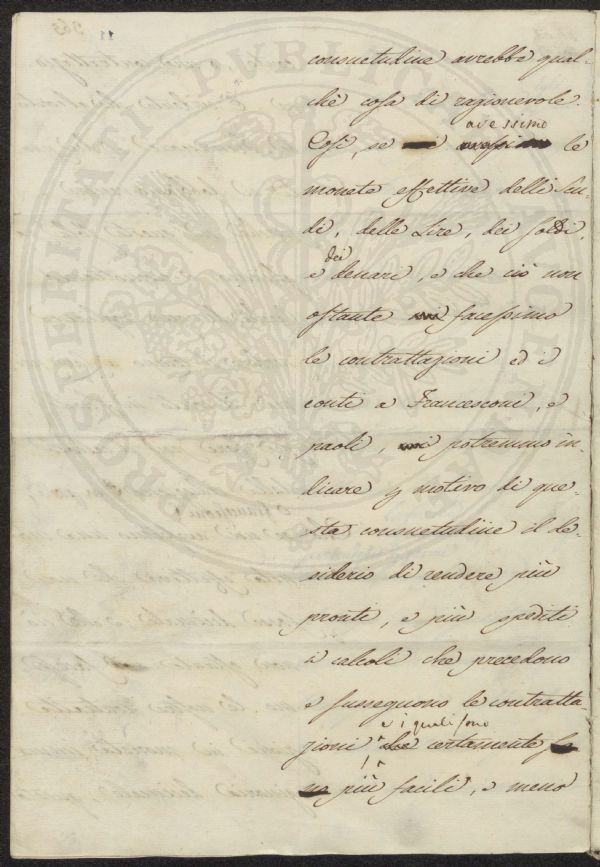 consuetudine avrebbe qual-
chè cosa di ragionevole.
avessimo
Così, se le
monete effettive delli Scu-
di, delle Lire, dei soldi,
dei
e denari, e che ciò non
ostante facessimo
le contrattazioni ed i
conti a Francesconi, e
paoli, potremmo in-
dicare p motivo di que-
sta consuetudine il de-
siderio di rendere più
pronti, e più spediti
i calcoli che precedono
e susseguono le contratta-
e i quali sono
zioni che certamente
più facili, e meno